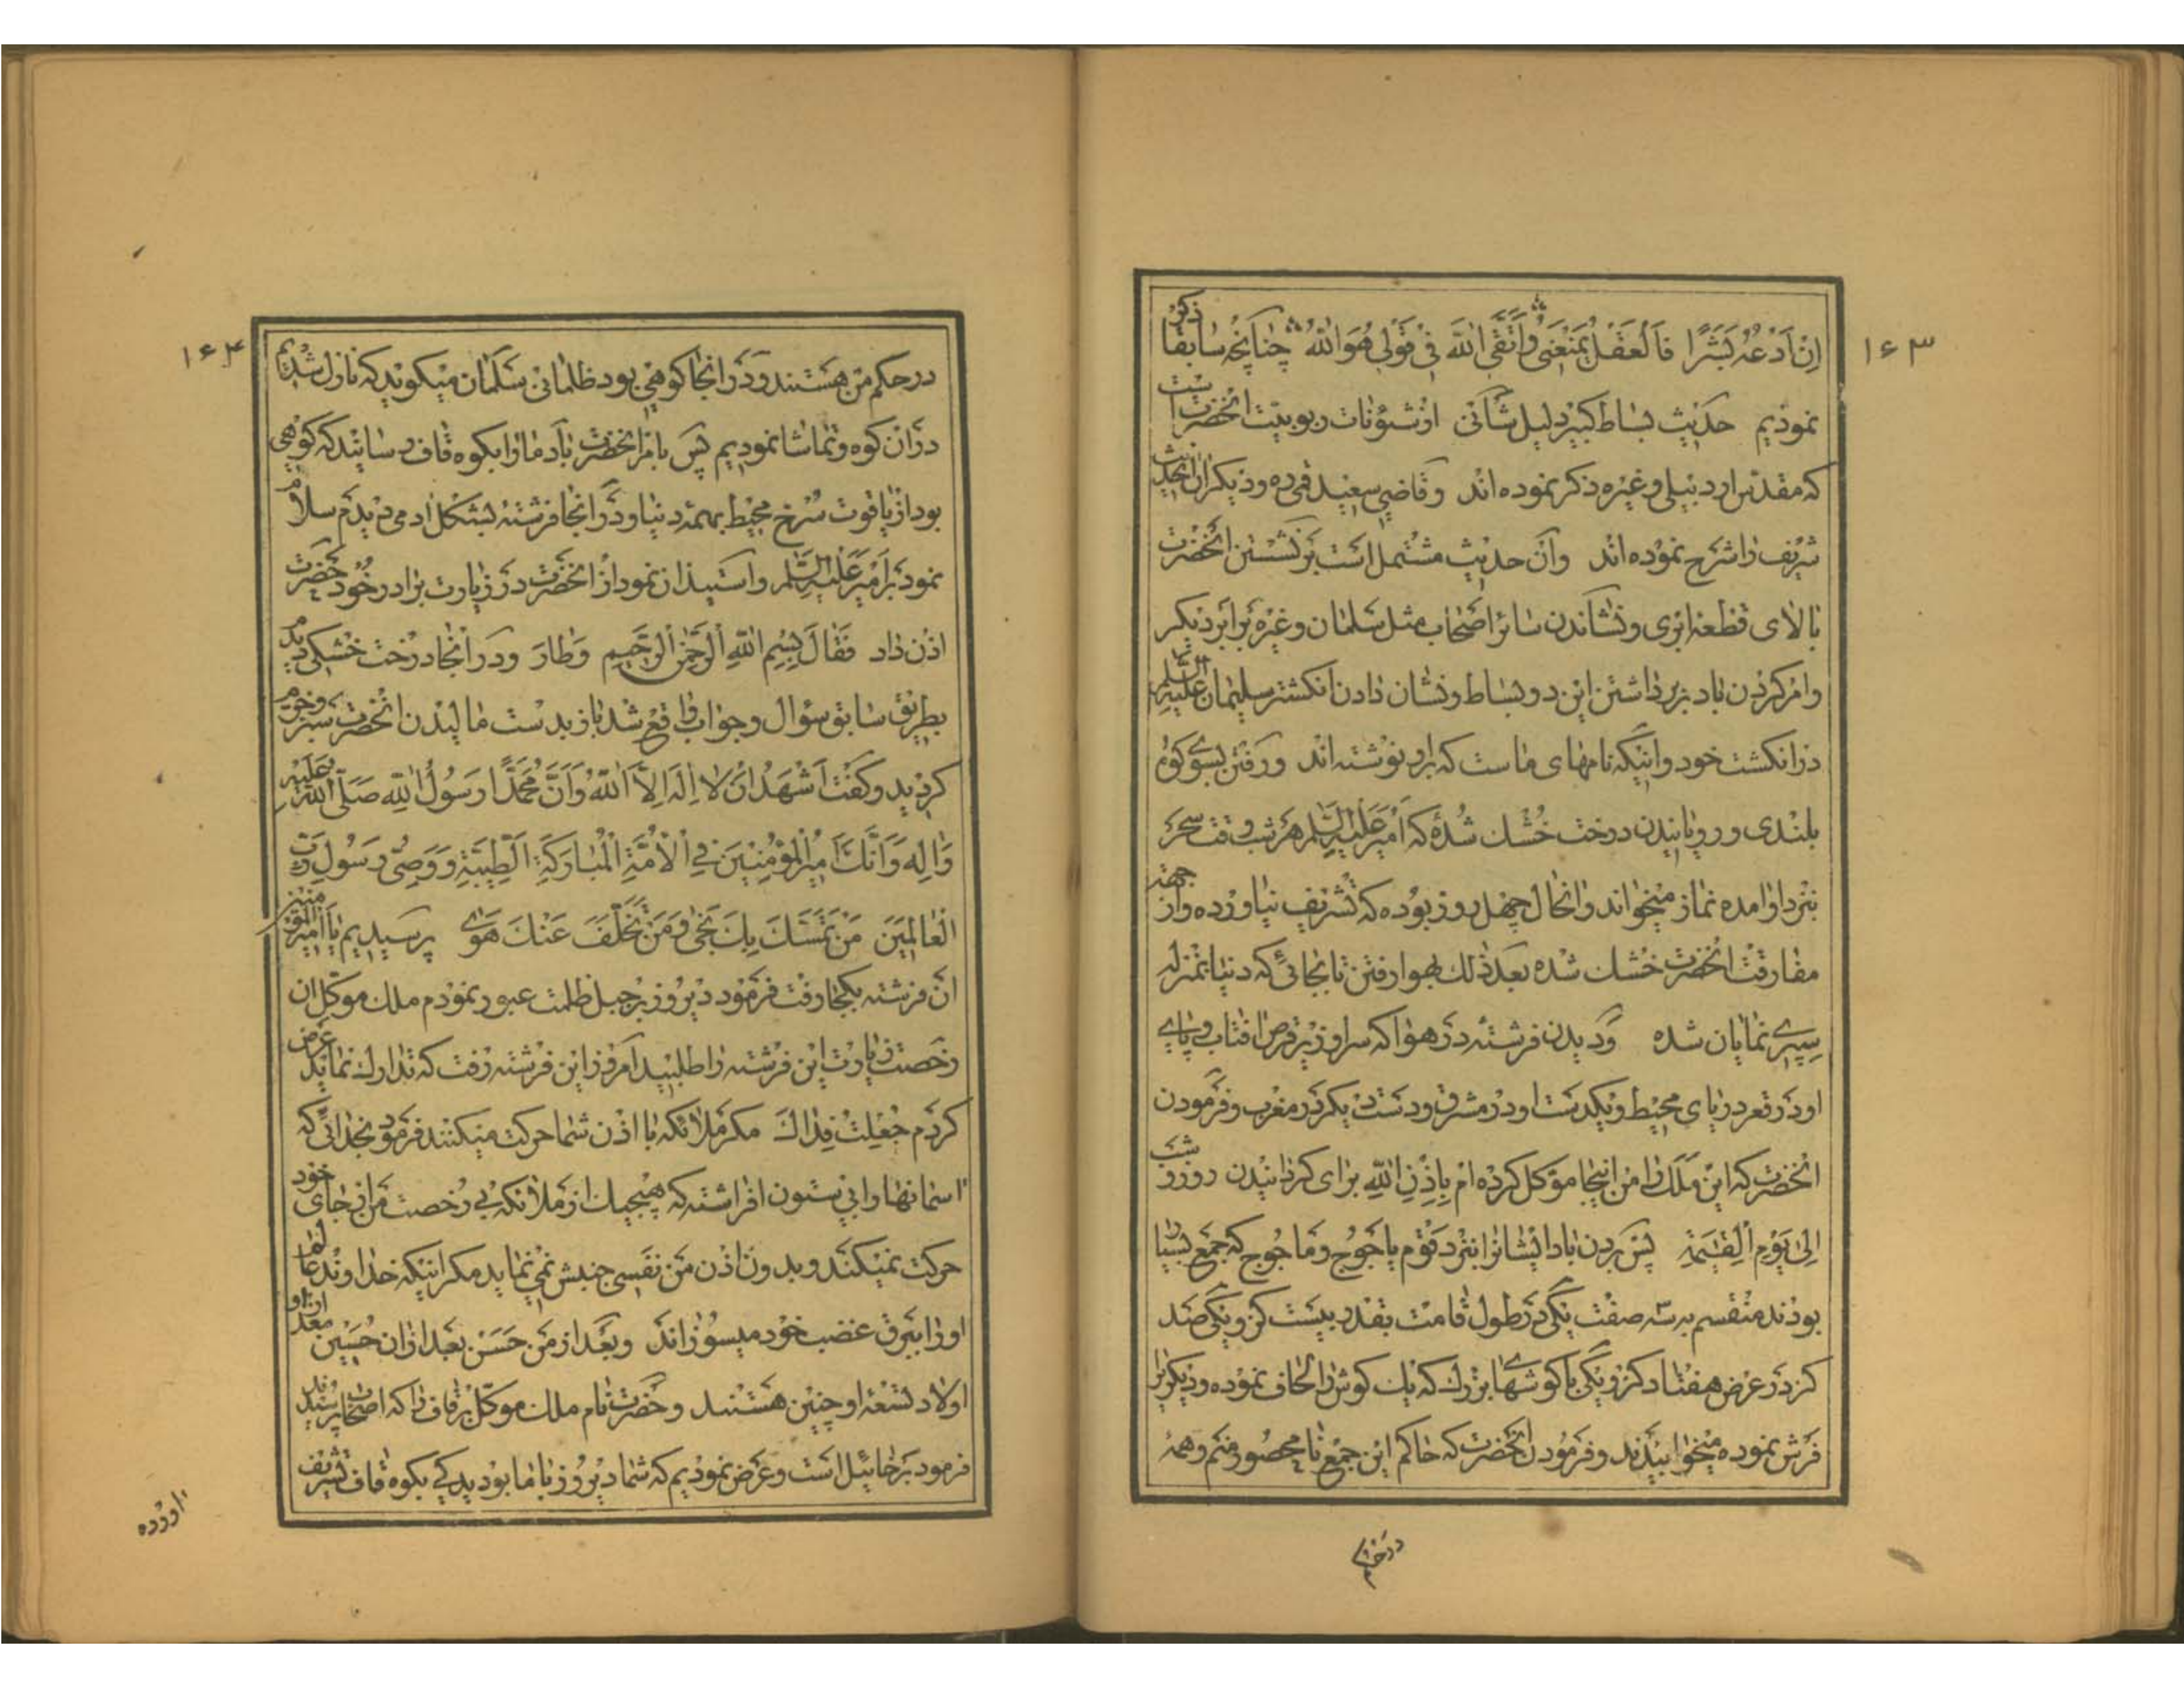 ۱۶۳
اِنْ اَدْعُهُ بَشَرًا فَالْعَقْلُ یَمْنَعُنِی وَاَتَّقِی اللّٰهَ فِی قَوْلِی هُوَ اللّٰهُ چنانچه سابقا ذکر
نمودیم حدیث بساط کبیر دلیل شأنی از شئونات ربوبیت انحضرت است
که مقدس اردبیلی و غیره ذکر نموده اند و قاضی سعید قمی ده و دیگران انحدیث
شریف را شرح نموده اند وان حدیث مشتمل است بر نشستن انحضرت
بالای قطعه ابری و نشاندن سائر اصحاب مثل سلمان و غیره بر ابر دیگر
و امر کردن باد بر برداشتن این دو بساط و نشان دادن انکشتر سلیمان علیه السلام
در انکشت خود و اینکه نامهای ماست که بر او نوشته اند و رفتن بسوی کوه
بلندی و رویانیدن درخت خشک شده که امیر علیه السلام هر شب وقت سحر
نزد او امده نماز میخواند و انحال چهل روز بوده که تشریف نیاورده و از جهة
مفارقت انحضرت خشک شده بعد ذلک بهوا رفتن تا بجائی که دنیا بمنزله
سپری نمایان شده و دیدن فرشتهٔ در هوا که سر او زیر قرص افتاب و پای
او در قعر دریای محیط و یکدست او در مشرق و دست دیگر در مغرب و فرمودن
انحضرت که این ملک را من اینجا موکل کرده ام باذن الله برای کردانیدن روز و شب
الی یوم القیمة پس بردن باد ایشانرا نزد قوم یاجوج و ماجوج که جمع بسیار
بودند منقسم به سه صفت یکی در طول قامت بقدر بیست کز و یکی صد
کز در عرض هفتاد کز و یکی با کوشهای بزرک که یک کوش را لحاف نموده و دیگری را
فرش نموده میخوابیدند و فرمودن انحضرت که حاکم این جمع نا محصور منم و همه
در حکم
۱۶۴
در حکم من هستند و در انجا کوهی بود ظلمانی سلمان میکوید که نازل شدیم
در ان کوه و تماشا نمودیم پس بامر انحضرت باد ما را بکوه قاف رسانید که کوهی
بود از یاقوت سرخ محیط بهمهٔ دنیا و در انجا فرشته بشکل ادمی دیدم سلام
نمود بر امیر علیه السلام و استیذان نمود از انحضرت در زیارت برادر خود حضرت
اذن داد فَقَالَ بِسْمِ اللّٰهِ الرَّحْمٰنِ الرَّحِیمِ وَطَارَ و در انجا درخت خشکی دیدیم
بطریق سابق سؤال و جواب واقع شد باز بدست مالیدن انحضرت سبز و خرم
کردید و کفت اَشْهَدُ اَنْ لَا اِلٰهَ اِلَّا اللّٰهُ وَاَنَّ مُحَمَّدًا رَسُولُ اللّٰهِ صَلَّی اللّٰهُ عَلَیْهِ
وَاٰلِهِ وَاَنَّکَ اَمِیرُ الْمُؤْمِنِینَ فِی الْاُمَّةِ الْمُبَارَکَةِ الطَّیِّبَةِ وَوَصِیُّ رَسُولِ رَبِّ
الْعَالَمِینَ مَنْ تَمَسَّکَ بِکَ نَجٰی وَمَنْ تَخَلَّفَ عَنْکَ هَوٰی پرسیدیم یا امیر المؤمنین
ان فرشته بکجا رفت فرمود دیروز بر جبل ظلمت عبور نمودم ملک موکل ان
رخصت زیارت این فرشته را طلبید امروز این فرشته رفت که تدارک نماید عرض
کردم جُعِلْتُ فِدَاکَ مکر ملائکه با اذن شما حرکت میکنند فرمود بخدائی که
اسمانها را بی ستون افراشته که هیچیک از ملائکه بی رخصت من از جای خود
حرکت نمیکنند و بدون اذن من نفسی جنبش نمی نماید مکر اینکه خداوند عالم
او را ببرق غضب خود میسوزاند و بعد از من حسن بعد از ان حسین بعد از او
اولاد تسعهٔ او چنین هستند و حضرت نام ملک موکل بر قاف را که اصحاب پرسیدند
فرمود برخائیل است و عرض نمودیم که شما دیروز با ما بودید کی بکوه قاف تشریف
اورده